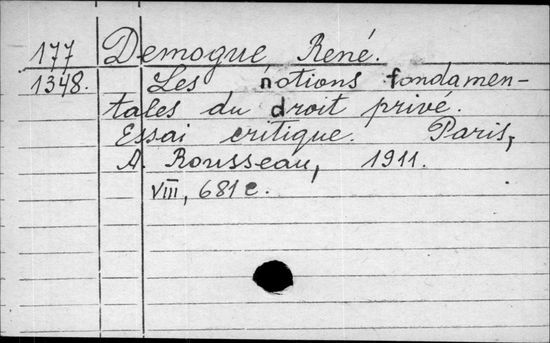 177 Demogue René.
1348. Les notions fondamen-
tales du droit privé.
Essai critique. Paris,
A. Rousseau, 1911.
VIII, 681 c.